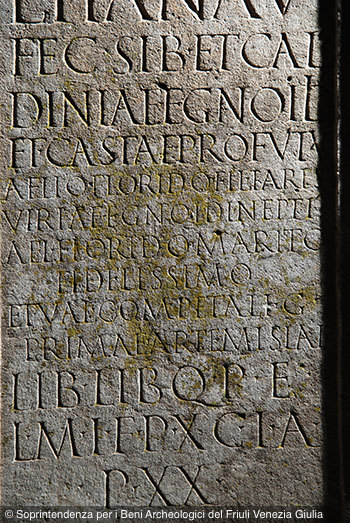 FEC·SIB·ET·CAL
DINIAE·EGNOI
ET CASTAE PROFVT
AELIO FLORIDO
VIRIAE EGNOIDI NEPTI
AEL·FLORIDO·MARIT
FIDELISSIMO
ET VAL COMPITALI
PRIMAE ARTEMISIAE
LIB LIBQ P E
L M I F·P·XCI A
P·XX
© Soprintendenza per i Beni Archeologici del Friuli Venezia Giulia